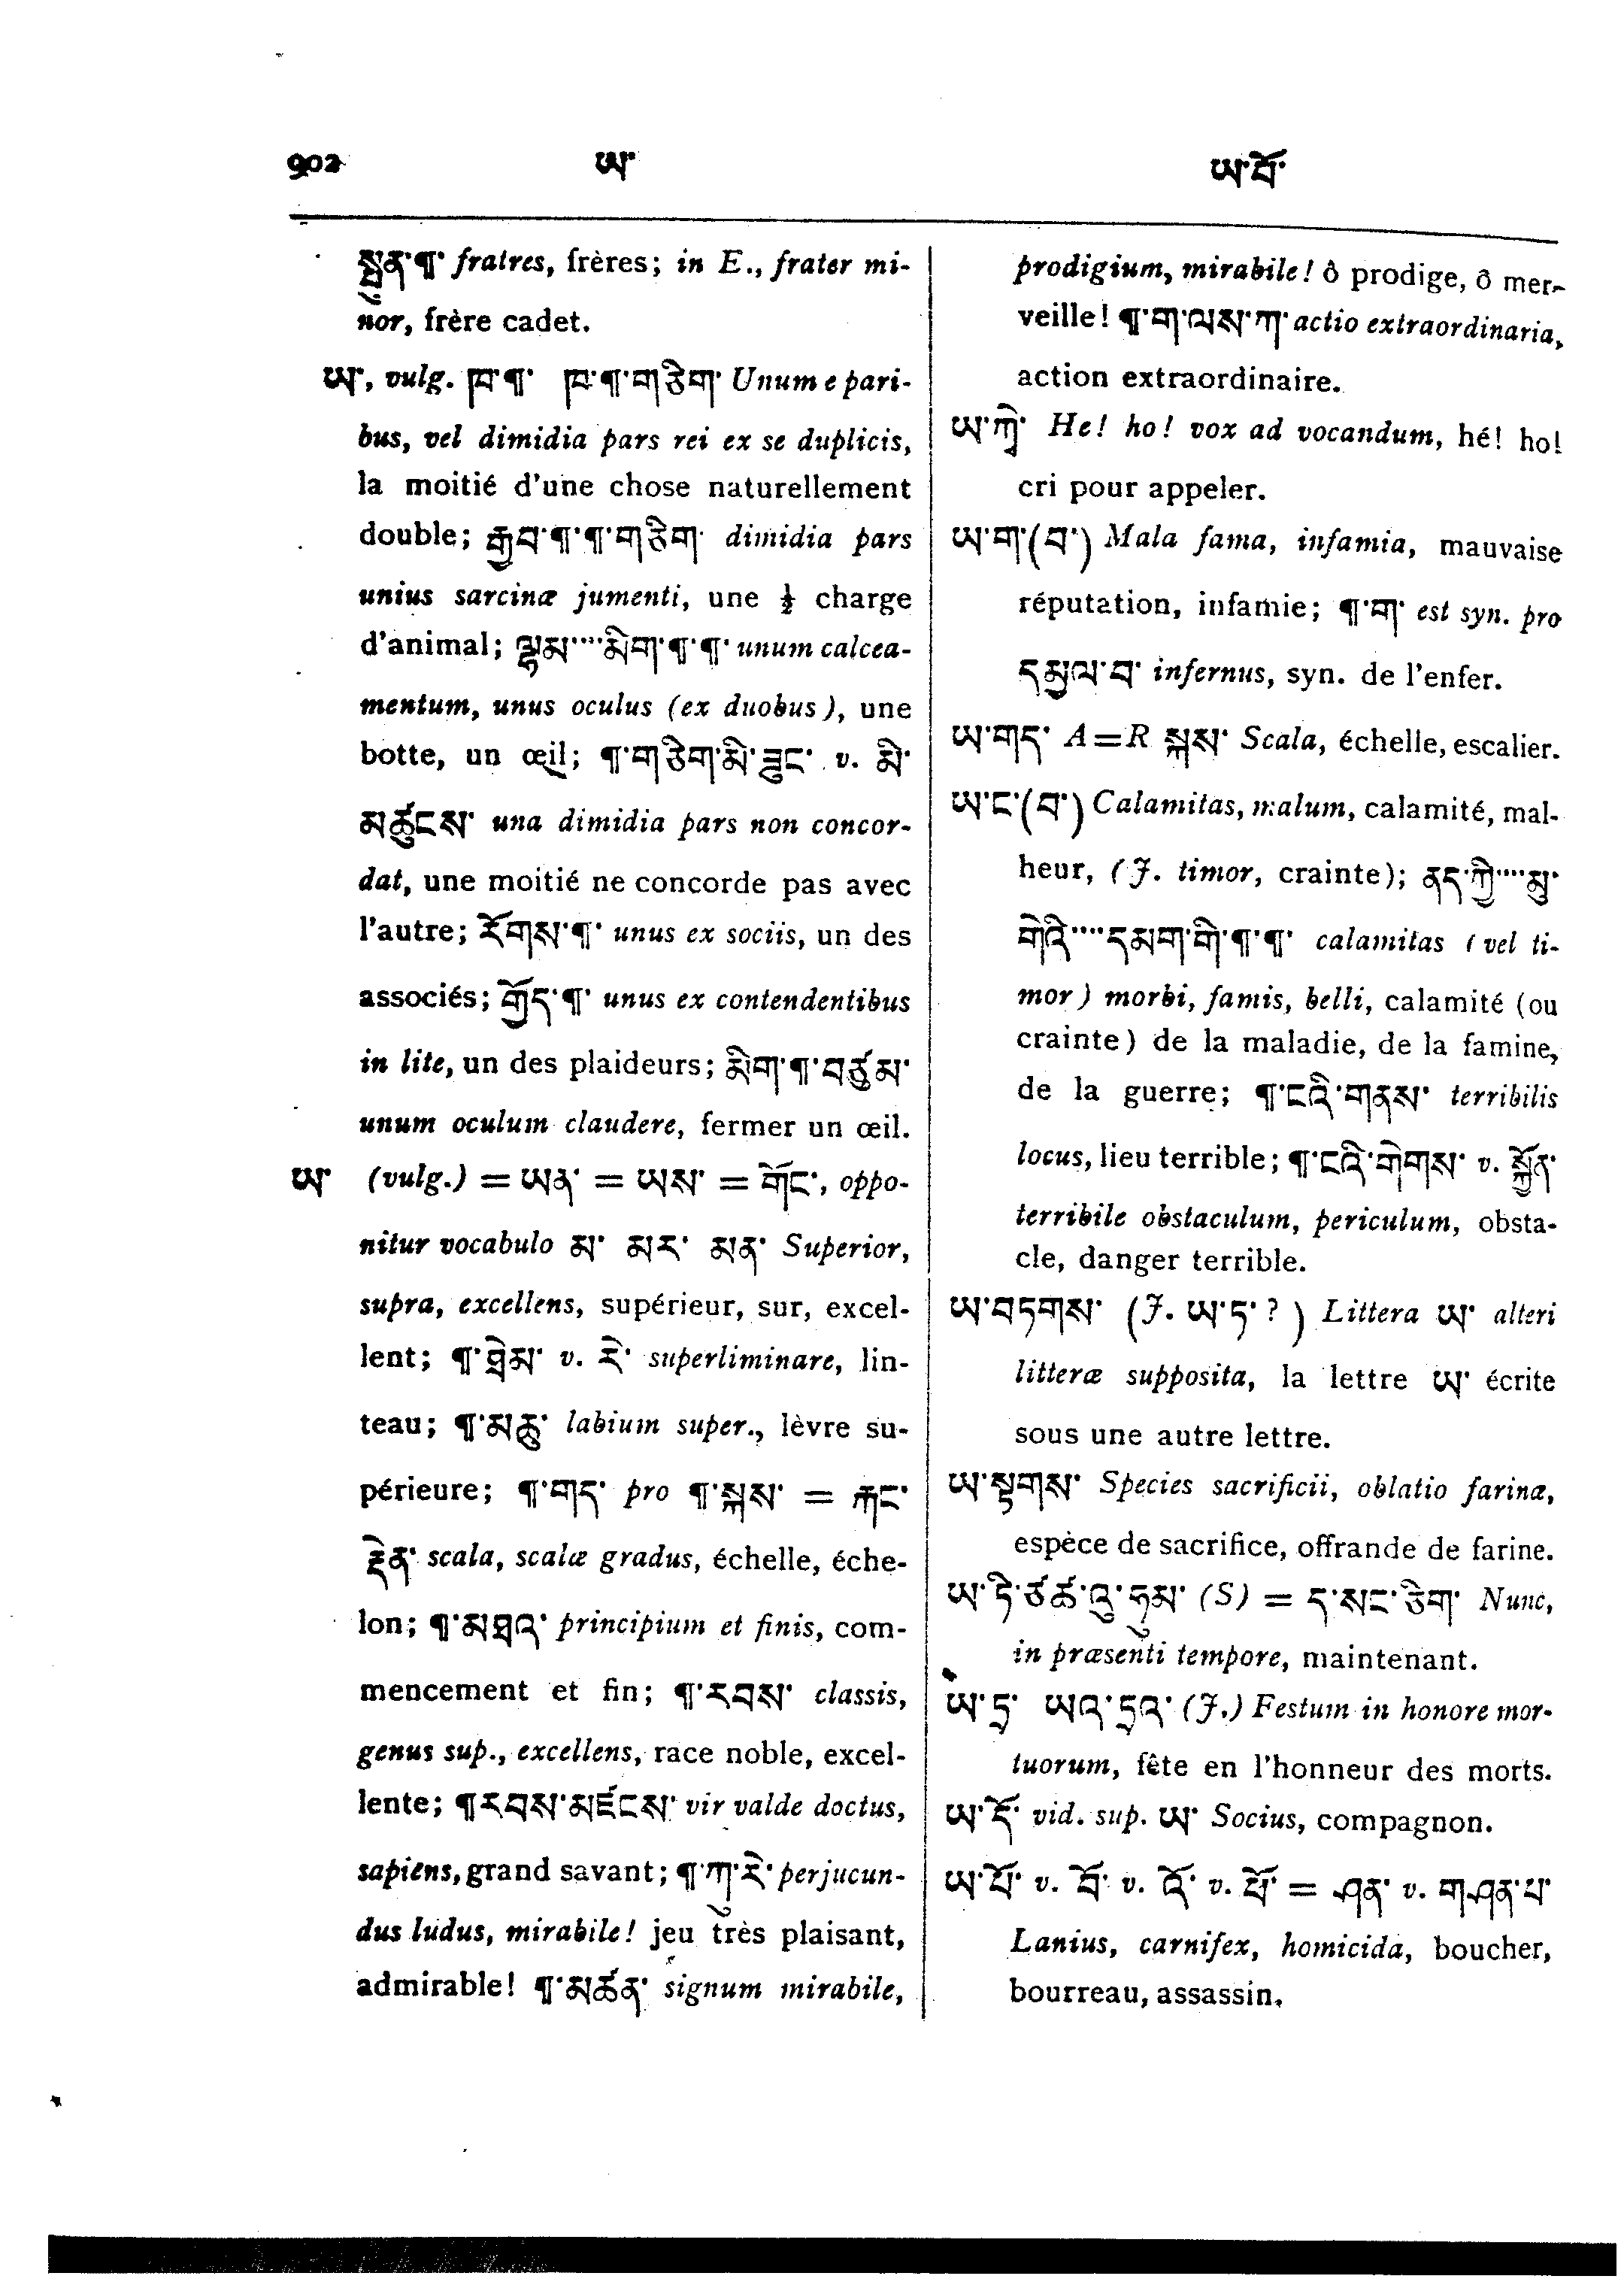 902 ཡ་ ཡ་བོ་
སྤུན་¶་ fratres, frères; in E., frater mi-
nor, frère cadet.
ཡ་, vulg. ཁ་¶་ ཁ་¶་གཅིག་ Unum e pari-
bus, vel dimidia pars rei ex se duplicis,
la moitié d'une chose naturellement
double; རྒྱབ་¶་¶་གཅིག་ dimidia pars
unius sarcinæ jumenti, une ½ charge
d'animal; ལྷམ་····མིག་¶་¶་ unum calcea-
mentum, unus oculus (ex duobus), une
botte, un œil; ¶་གཅིག་མི་ཟུང་ v. མི་
མཚུངས་ una dimidia pars non concor-
dat, une moitié ne concorde pas avec
l'autre; རོགས་¶་ unus ex sociis, un des
associés; གྱོད་¶་ unus ex contendentibus
in lite, un des plaideurs; མིག་¶་བཙུམ་
unum oculum claudere, fermer un œil.
ཡ་ (vulg.) = ཡན་ = ཡས་ = གོང་, oppo-
nitur vocabulo མ་ མར་ མན་ Superior,
supra, excellens, supérieur, sur, excel-
lent; ¶་ཐེམ་ v. རེ་ superliminare, lin-
teau; ¶་མཆུ་ labium super., lèvre su-
périeure; ¶་གད་ pro ¶་སྐས་ = རྐང་
རྟེན་ scala, scalæ gradus, échelle, éche-
lon; ¶་མཐའ་ principium et finis, com-
mencement et fin; ¶་རབས་ classis,
genus sup., excellens, race noble, excel-
lente; ¶རབས་མཛངས་ vir valde doctus,
sapiens, grand savant; ¶་ཀུ་རེ་ perjucun-
dus ludus, mirabile! jeu très plaisant,
admirable! ¶་མཚན་ signum mirabile,
prodigium, mirabile! ô prodige, ô mer-
veille! ¶་ག་ལས་ཀ་ actio extraordinaria,
action extraordinaire.
ཡ་ཀྱེ་ He! ho! vox ad vocandum, hé! ho!
cri pour appeler.
ཡ་ག་(བ་) Mala fama, infamia, mauvaise
réputation, infamie; ¶་ག་ est syn. pro
དམྱལ་བ་ infernus, syn. de l'enfer.
ཡ་གད་ A=R སྐས་ Scala, échelle, escalier.
ཡ་ང་(བ་) Calamitas, malum, calamité, mal-
heur, (J. timor, crainte); ནད་ཀྱི····མུ་
གེའི····དམག་གི་¶་¶་ calamitas (vel ti-
mor) morbi, famis, belli, calamité (ou
crainte) de la maladie, de la famine,
de la guerre; ¶་ངའི་གནས་ terribilis
locus, lieu terrible; ¶་ངའི་གེགས་ v. སྐྱོན་
terribile obstaculum, periculum, obsta-
cle, danger terrible.
ཡ་བཏགས་ (J. ཡ་ཏ་?) Littera ཡ་ alteri
litteræ supposita, la lettre ཡ་ écrite
sous une autre lettre.
ཡ་སྟགས་ Species sacrificii, oblatio farinæ,
espèce de sacrifice, offrande de farine.
ཡ་དི་ཙཚ་འུ་ཧུམ་ (S) = ད་སང་ཅིག་ Nunc,
in præsenti tempore, maintenant.
ཡ་དྲ་ ཡའ་དྲའ་ (J.) Festum in honore mor-
tuorum, fête en l'honneur des morts.
ཡ་དོ་ vid. sup. ཡ་ Socius, compagnon.
ཡ་པོ་ v. བོ་ v. འོ་ v. ཕོ་ = ཤན་ v. གཤན་པ་
Lanius, carnifex, homicida, boucher,
bourreau, assassin.